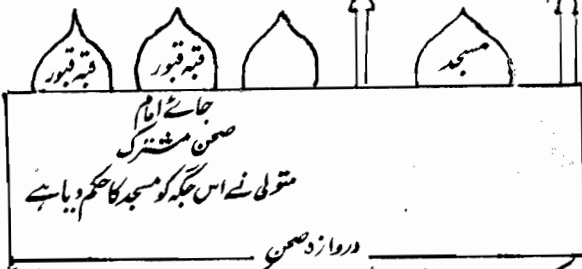 مسجد
قبۂ قبور
قبۂ قبور
جائے امام
صحن مشترک
متولی نے اس جگہ کو مسجد کا حکم دیا ہے
دروازہ صحن